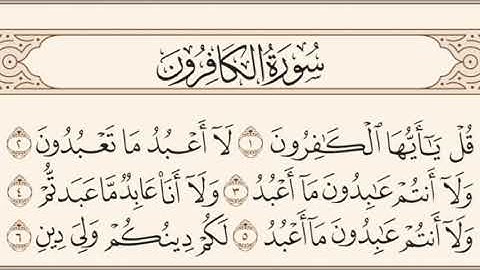 سُورَةُ الكَافِرُونَ
قُلۡ يَٰٓأَيُّهَا ٱلۡكَٰفِرُونَ ١ لَآ أَعۡبُدُ مَا تَعۡبُدُونَ ٢
وَلَآ أَنتُمۡ عَٰبِدُونَ مَآ أَعۡبُدُ ٣ وَلَآ أَنَا۠ عَابِدٞ مَّا عَبَدتُّمۡ ٤
وَلَآ أَنتُمۡ عَٰبِدُونَ مَآ أَعۡبُدُ ٥ لَكُمۡ دِينُكُمۡ وَلِيَ دِينِ ٦